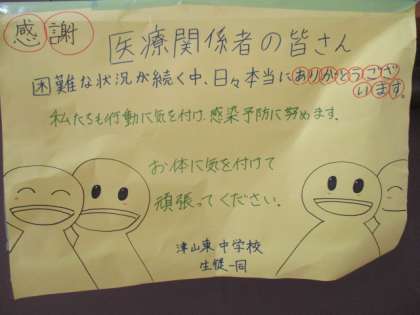 感謝
医療関係者の皆さん
困難な状況が続く中、日々本当にありがとうござ
います。
私たちも行動に気を付け、感染予防に努めます。
お体に気を付けて
頑張ってください。
津山東中学校
生徒一同